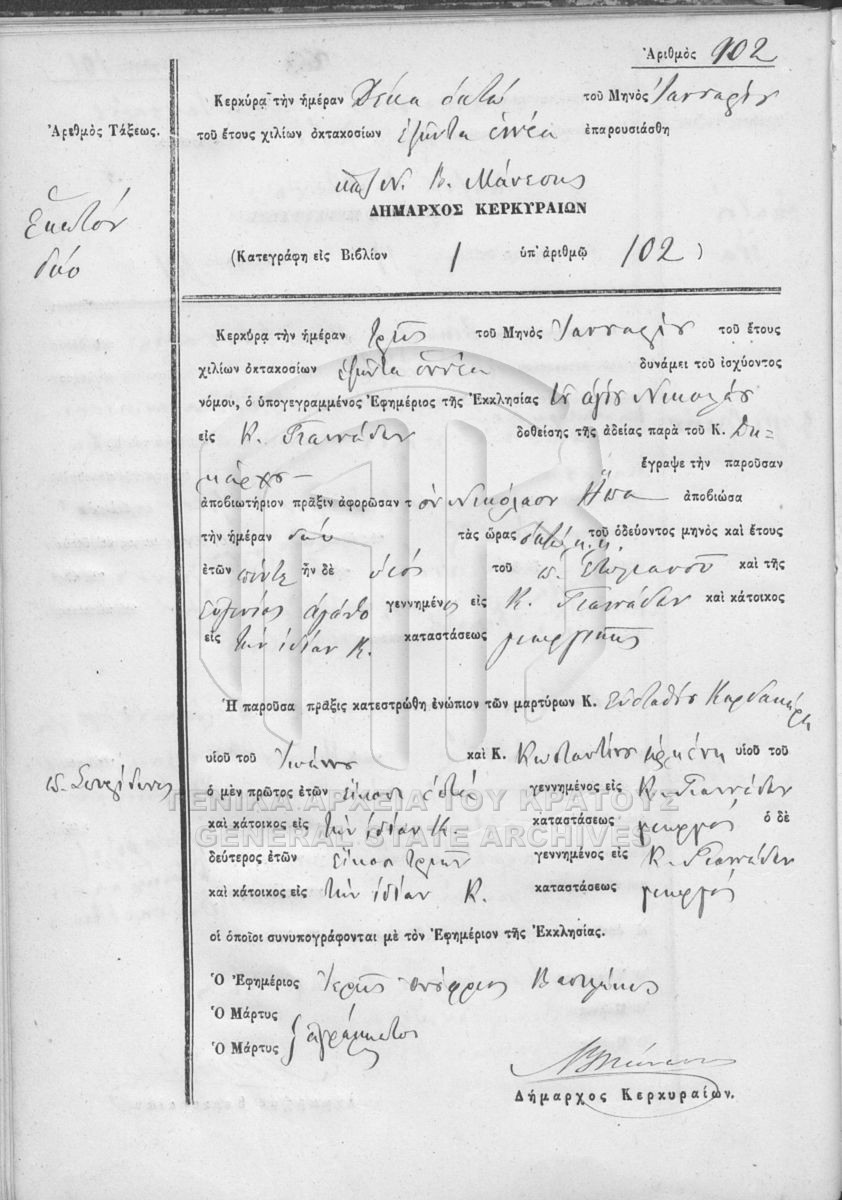 Ἀριθμὸς 102
Κερκύρᾳ τὴν ἡμέραν Δέκα ὀκτὼ τοῦ Μηνὸς Ἰανουαρίου
Ἀριθμὸς Τάξεως.
τοῦ ἔτους χιλίων ὀκτακοσίων ἑξῆντα ἐννέα ἐπαρουσιάσθη
Β. Μάνεσης
ΔΗΜΑΡΧΟΣ ΚΕΡΚΥΡΑΙΩΝ
Ἑκατόν
δύο
(Κατεγράφη εἰς Βιβλίον 1 ὑπ' ἀριθμῷ 102)
Κερκύρᾳ τὴν ἡμέραν τρεῖς τοῦ Μηνὸς Ἰανουαρίου τοῦ ἔτους
χιλίων ὀκτακοσίων ἑξῆντα ἐννέα δυνάμει τοῦ ἰσχύοντος
νόμου, ὁ ὑπογεγραμμένος Ἐφημέριος τῆς Ἐκκλησίας ἁγίου Νικολάου
εἰς Κ. Γιαννάδων δοθείσης τῆς ἀδείας παρὰ τοῦ Κ. Δη-
μάρχου ἔγραψε τὴν παροῦσαν
ἀποβιωτήριον πρᾶξιν ἀφορῶσαν τὸν Νικόλαον ἀποβιώσα
τὴν ἡμέραν δύο τὰς ὥρας ὀκτὼ π.μ. τοῦ ὁδεύοντος μηνὸς καὶ ἔτους
ἐτῶν πέντε ἦν δὲ υἱὸς τοῦ π. Στυλιανοῦ καὶ τῆς
Εὐγενίας γεννημένος εἰς Κ. Γιαννάδων καὶ κάτοικος
εἰς τὴν ἰδίαν Κ. καταστάσεως
Ἡ παροῦσα πρᾶξις κατεστρώθη ἐνώπιον τῶν μαρτύρων Κ. Εὐσταθίου Καρδακάρη
υἱοῦ τοῦ Ἰωάννου καὶ Κ. Κωσταντίνου υἱοῦ τοῦ
π. Σπυρίδωνος
ὁ μὲν πρῶτος ἐτῶν εἴκοσι ἑπτά γεννημένος εἰς Κ. Γιαννάδων
καὶ κάτοικος εἰς τὴν ἰδίαν Κ. καταστάσεως γεωργός ὁ δὲ
δεύτερος ἐτῶν εἴκοσι τριῶν γεννημένος εἰς Κ. Γιαννάδων
καὶ κάτοικος εἰς τὴν ἰδίαν Κ. καταστάσεως γεωργός
οἱ ὁποῖοι συνυπογράφονται μὲ τὸν Ἐφημέριον τῆς Ἐκκλησίας.
Ὁ Ἐφημέριος Ἱερεὺς
Ὁ Μάρτυς
ἀγράμματοι
Ὁ Μάρτυς
Δήμαρχος Κερκυραίων.
ΓΕΝΙΚΑ ΑΡΧΕΙΑ ΤΟΥ ΚΡΑΤΟΥΣ
GENERAL STATE ARCHIVES